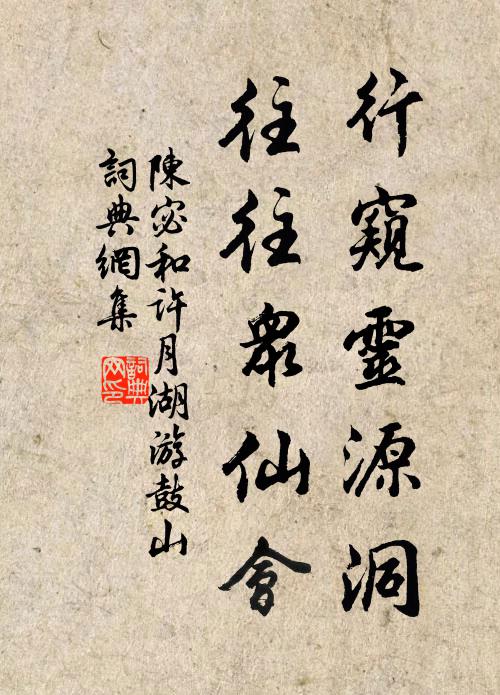 行窺靈源洞
往往衆仙會
陳宓和許月湖游鼓山
詞典網集
詞典
网印